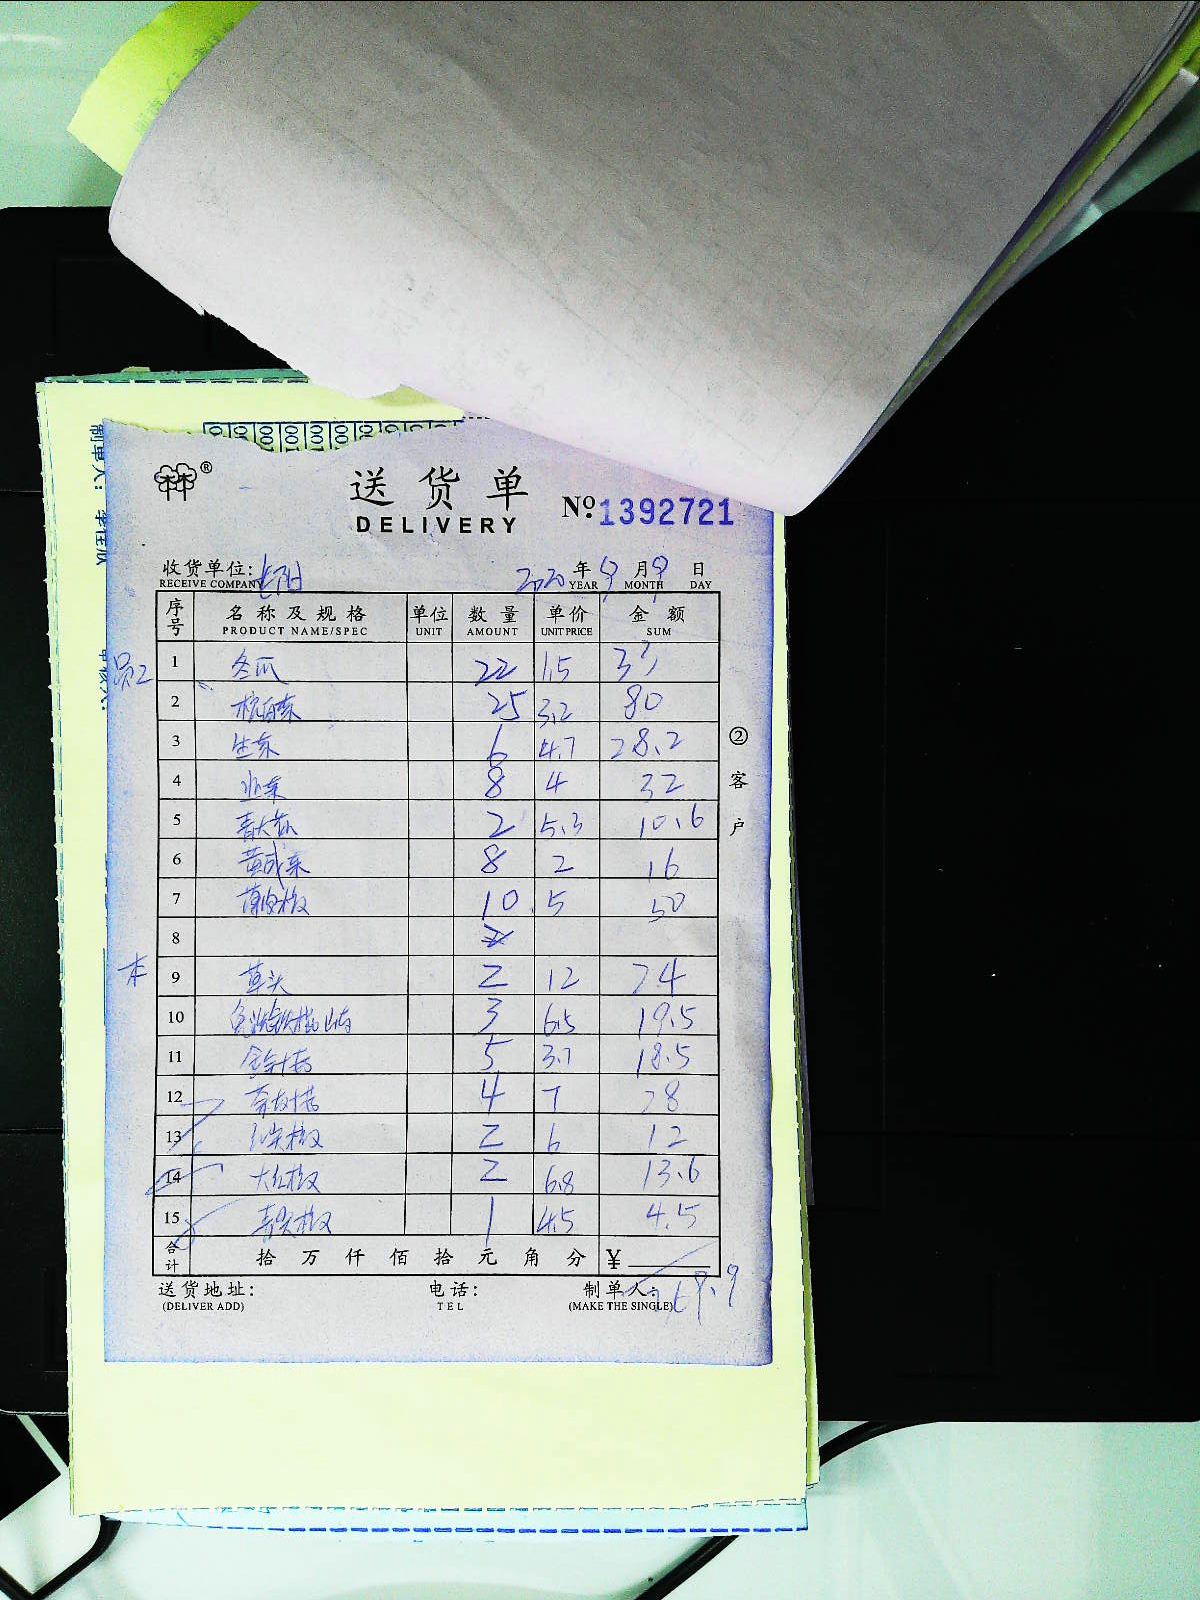 送货单
DELIVERY
№ 1392721
收货单位: 长阳 2020 年 9 月 9 日
RECEIVE COMPANY YEAR MONTH DAY
序号 名称及规格 单位 数量 单价 金额
PRODUCT NAME/SPEC UNIT AMOUNT UNIT PRICE SUM
员工 1 冬瓜 22 1.5 33
2 杭白菜 25 3.2 80
3 生菜 6 4.7 28.2
4 4 8 32
5 青大蒜 2 5.3 10.6
6 8 2 16
7 薄皮椒 10 5 50
8
本 9 草头 2 12 24
10 3 6.5 19.5
11 金针菇 5 3.7 18.5
12 4 7 28
13 尖椒 2 6 12
14 大红椒 2 6.8 13.6
15 青尖椒 1 4.5 4.5
合计 拾 万 仟 佰 拾 元 角 分 ¥
送货地址: 电话: 制单人:
(DELIVER ADD) TEL (MAKE THE SINGLE)
②客户
制单人:
审核人: